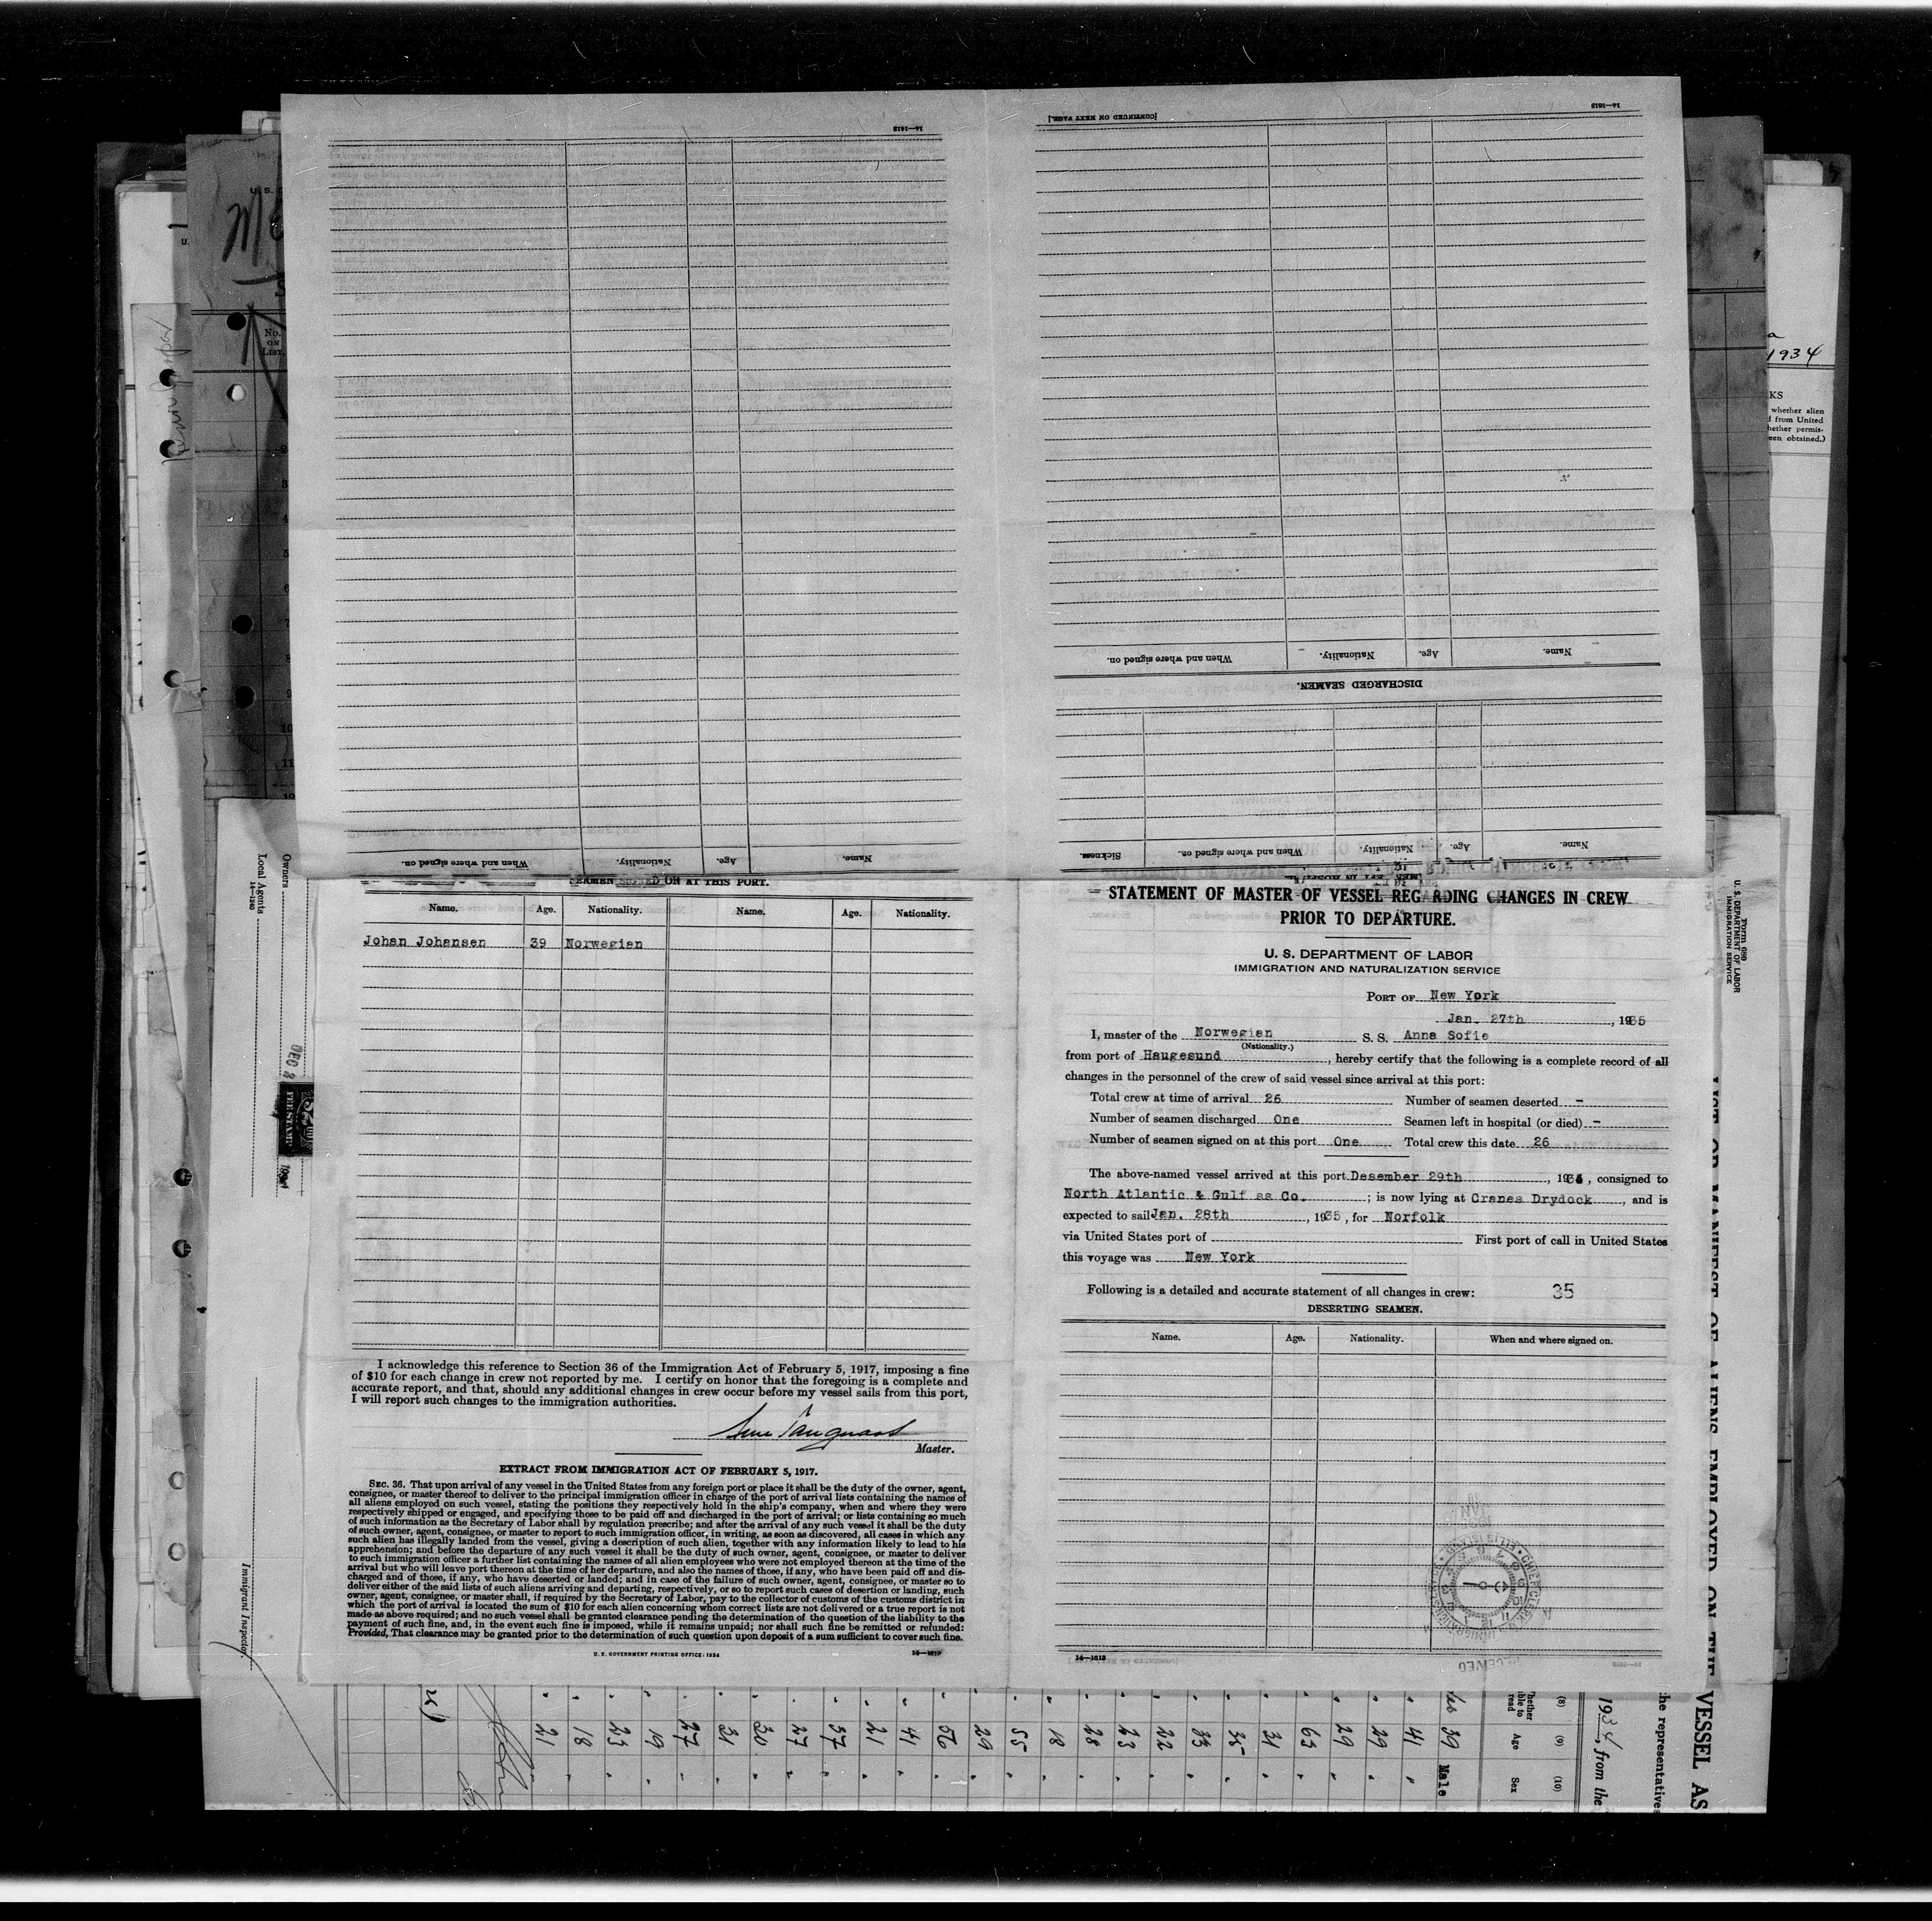 14—1613
[CONTINUED ON NEXT PAGE.]
14—1613
When and where signed on.
Nationality.
Age.
Name.
DISCHARGED SEAMEN.
Sickness.
When and where signed on.
Nationality.
Age.
Name.
When and where signed on.
Nationality.
Age.
Name.
SEAMEN SIGNED ON AT THIS PORT.
Name. Age. Nationality. Name. Age. Nationality.
Johan Johansen 39 Norwegian
I acknowledge this reference to Section 36 of the Immigration Act of February 5, 1917, imposing a fine
of $10 for each change in crew not reported by me. I certify on honor that the foregoing is a complete and
accurate report, and that, should any additional changes in crew occur before my vessel sails from this port,
I will report such changes to the immigration authorities.
Master.
EXTRACT FROM IMMIGRATION ACT OF FEBRUARY 5, 1917.
SEC. 36. That upon arrival of any vessel in the United States from any foreign port or place it shall be the duty of the owner, agent,
consignee, or master thereof to deliver to the principal immigration officer in charge of the port of arrival lists containing the names of
all aliens employed on such vessel, stating the positions they respectively hold in the ship's company, when and where they were
respectively shipped or engaged, and specifying those to be paid off and discharged in the port of arrival; or lists containing so much
of such information as the Secretary of Labor shall by regulation prescribe; and after the arrival of any such vessel it shall be the duty
of such owner, agent, consignee, or master to report to such immigration officer, in writing, as soon as discovered, all cases in which any
such alien has illegally landed from the vessel, giving a description of such alien, together with any information likely to lead to his
apprehension; and before the departure of any such vessel it shall be the duty of such owner, agent, consignee, or master to deliver
to such immigration officer a further list containing the names of all alien employees who were not employed thereon at the time of the
arrival but who will leave port thereon at the time of her departure, and also the names of those, if any, who have been paid off and dis-
charged and of those, if any, who have deserted or landed; and in case of the failure of such owner, agent, consignee, or master so to
deliver either of the said lists of such aliens arriving and departing, respectively, or so to report such cases of desertion or landing, such
owner, agent, consignee, or master shall, if required by the Secretary of Labor, pay to the collector of customs of the customs district in
which the port of arrival is located the sum of $10 for each alien concerning whom correct lists are not delivered or a true report is not
made as above required; and no such vessel shall be granted clearance pending the determination of the question of the liability to the
payment of such fine, and, in the event such fine is imposed, while it remains unpaid; nor shall such fine be remitted or refunded:
Provided, That clearance may be granted prior to the determination of such question upon deposit of a sum sufficient to cover such fine.
U. S. GOVERNMENT PRINTING OFFICE: 1934
14—1613
STATEMENT OF MASTER OF VESSEL REGARDING CHANGES IN CREW
PRIOR TO DEPARTURE.
U. S. DEPARTMENT OF LABOR
IMMIGRATION AND NATURALIZATION SERVICE
PORT OF New York
Jan. 27th, 1935
I, master of the Norwegian S. S. Anna Sofie
(Nationality.)
from port of Haugesund, hereby certify that the following is a complete record of all
changes in the personnel of the crew of said vessel since arrival at this port:
Total crew at time of arrival 26 Number of seamen deserted -
Number of seamen discharged One Seamen left in hospital (or died) -
Number of seamen signed on at this port One Total crew this date 26
The above-named vessel arrived at this port Desember 29th, 1934, consigned to
North Atlantic & Gulf ss Co.; is now lying at Cranes Drydock, and is
expected to sail Jan. 28th, 1935, for Norfolk
via United States port of First port of call in United States
this voyage was New York
Following is a detailed and accurate statement of all changes in crew: 35
DESERTING SEAMEN.
Name. Age. Nationality. When and where signed on.
14—1613
RECEIVED
Owners
Local Agents
14—1240
Immigrant Inspector.
DEC
FEE STAMP
No. ON LIST.
a
1934
KS
whether alien
d from United
hether permis-
een obtained.)
Form 680
U. S. DEPARTMENT OF LABOR
IMMIGRATION SERVICE
LIST OR MANIFEST OF ALIENS EMPLOYED ON THE VESSEL AS
the representatives
1934, from the
(8) (9) (10)
Whether able to read Age Sex
39 Male
41
29
29
63
31
35
33
22
23
28
18
55
29
56
41
21
37
27
30
31
27
19
23
18
21